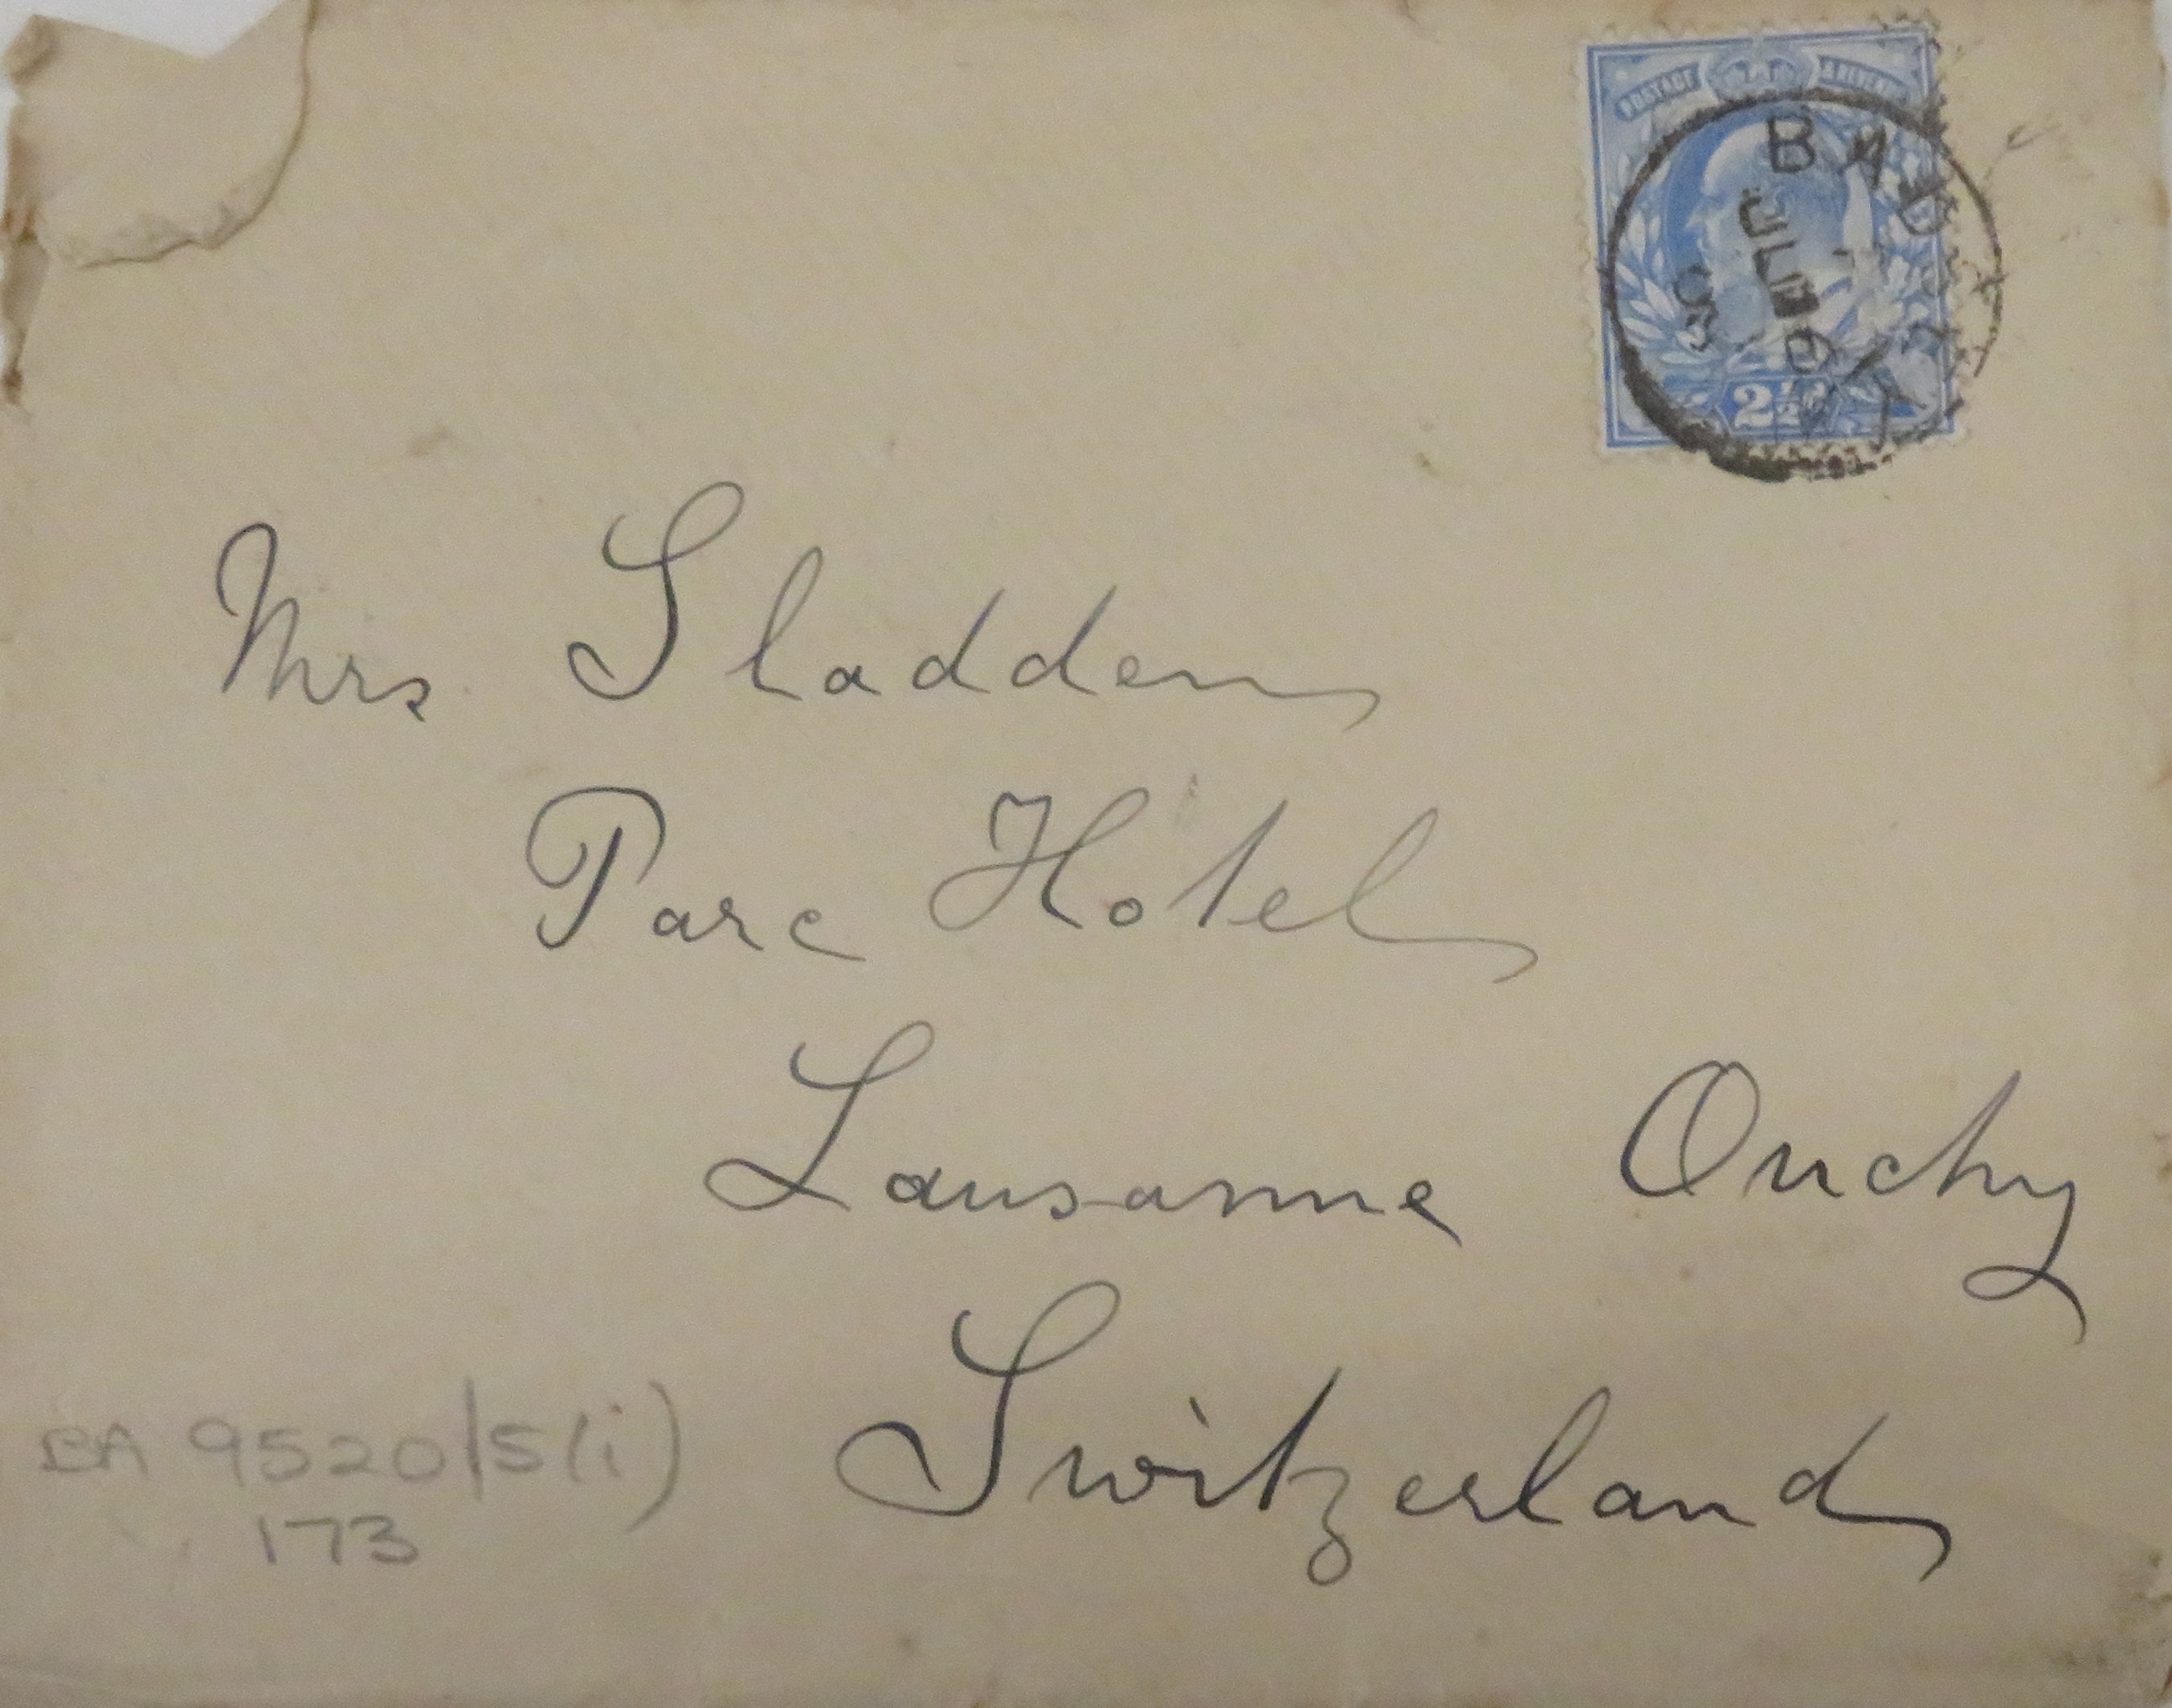 POSTAGE & REVENUE
BAD
03
2½d
Mrs Sladden
Parc Hôtel
Lausanne Ouchy
Switzerland
BA 9520/5(i)
173